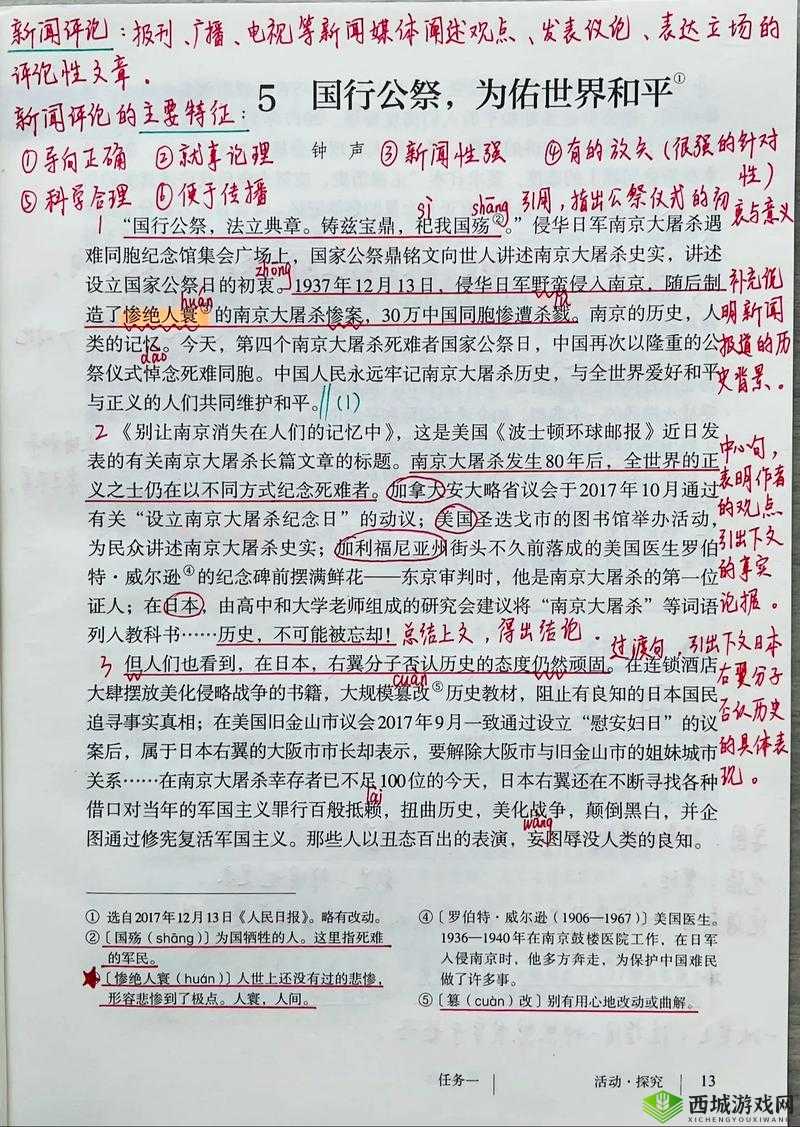 新闻评论：报刊、广播、电视等新闻媒体阐述观点、发表议论、表达立场的
评论性文章。
5 国行公祭，为佑世界和平①
新闻评论的主要特征：
钟 声
①导向正确 ②就事论理 ③新闻性强 ④有的放矢（很强的针对
性）
⑤科学合理 ⑥便于传播
sì shāng 引用，指出公祭仪式的初
衷与意义
1 “国行公祭，法立典章。铸兹宝鼎，祀我国殇②。”侵华日军南京大屠杀遇
难同胞纪念馆集会广场上，国家公祭鼎铭文向世人讲述南京大屠杀史实，讲述
zhōng
设立国家公祭日的初衷。1937年12月13日，侵华日军野蛮侵入南京，随后制
huán
造了惨绝人寰③的南京大屠杀惨案，30万中国同胞惨遭杀戮。南京的历史，人
类的记忆。今天，第四个南京大屠杀死难者国家公祭日，中国再次以隆重的公
dào
祭仪式悼念死难同胞。中国人民永远牢记南京大屠杀历史，与全世界爱好和平
与正义的人们共同维护和平。//（1）
补充说
明新闻
报道的历
史背景。
2 《别让南京消失在人们的记忆中》，这是美国《波士顿环球邮报》近日发
表的有关南京大屠杀长篇文章的标题。南京大屠杀发生80年后，全世界的正
义之士仍在以不同方式纪念死难者。加拿大安大略省议会于2017年10月通过
有关“设立南京大屠杀纪念日”的动议；美国圣迭戈市的图书馆举办活动，
为民众讲述南京大屠杀史实；加利福尼亚州街头不久前落成的美国医生罗伯
特·威尔逊④的纪念碑前摆满鲜花——东京审判时，他是南京大屠杀的第一位
证人；在日本，由高中和大学老师组成的研究会建议将“南京大屠杀”等词语
列入教科书……历史，不可能被忘却！ 总结上文，得出结论。
中心句，
表明作者
的观点，
引出下文
的事实
论据。
过渡句，引出下文日本
右翼分子
否认历史
的具体表
现。
3 但人们也看到，在日本，右翼分子否认历史的态度仍然顽固。在连锁酒店
cuàn
大肆摆放美化侵略战争的书籍，大规模篡改⑤历史教材，阻止有良知的日本国民
追寻事实真相；在美国旧金山市议会2017年9月一致通过设立“慰安妇日”的议
案后，属于日本右翼的大阪市市长却表示，要解除大阪市与旧金山市的姐妹城市
关系……在南京大屠杀幸存者已不足100位的今天，日本右翼还在不断寻找各种
lài
借口对当年的军国主义罪行百般抵赖，扭曲历史，美化战争，颠倒黑白，并企
wàng
图通过修宪复活军国主义。那些人以丑态百出的表演，妄图辱没人类的良知。
① 选自2017年12月13日《人民日报》。略有改动。
② 〔国殇（shāng）〕为国牺牲的人。这里指死难
的军民。
〔惨绝人寰（huán）〕人世上还没有过的悲惨，
形容悲惨到了极点。人寰，人间。
④ 〔罗伯特·威尔逊（1906—1967）〕美国医生。
1936—1940年在南京鼓楼医院工作，在日军
入侵南京时，他多方奔走，为保护中国难民
做了许多事。
⑤ 〔篡（cuàn）改〕别有用心地改动或曲解。
任务一 活动·探究 13
西城游戏网
XICHENGYOUXIWANG